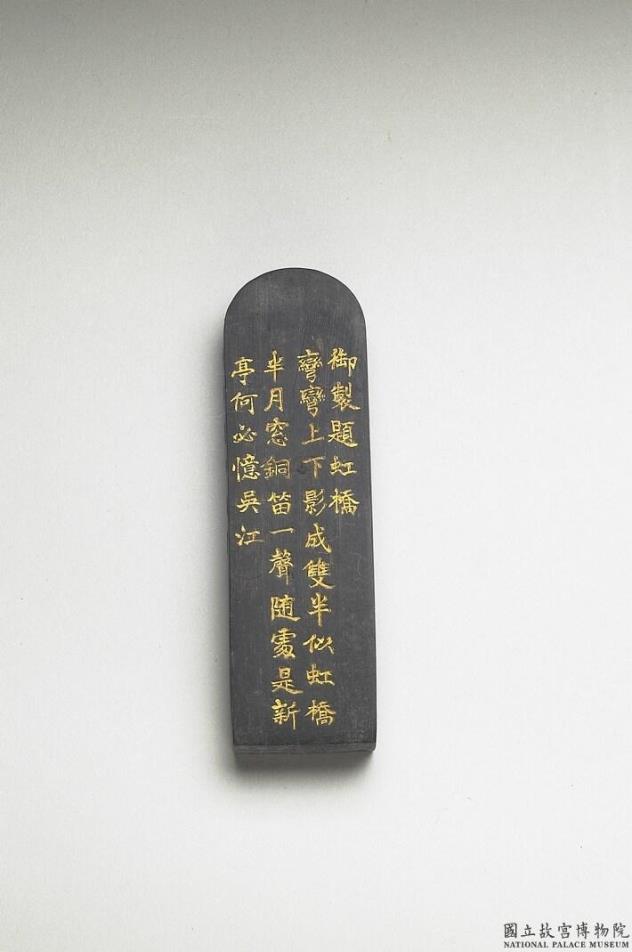 御製題虹橋
彎彎上下影成雙半似虹橋
半月窓銅笛一聲随處是新
亭何必憶吳江
國立故宮博物院
NATIONAL PALACE MUSEUM